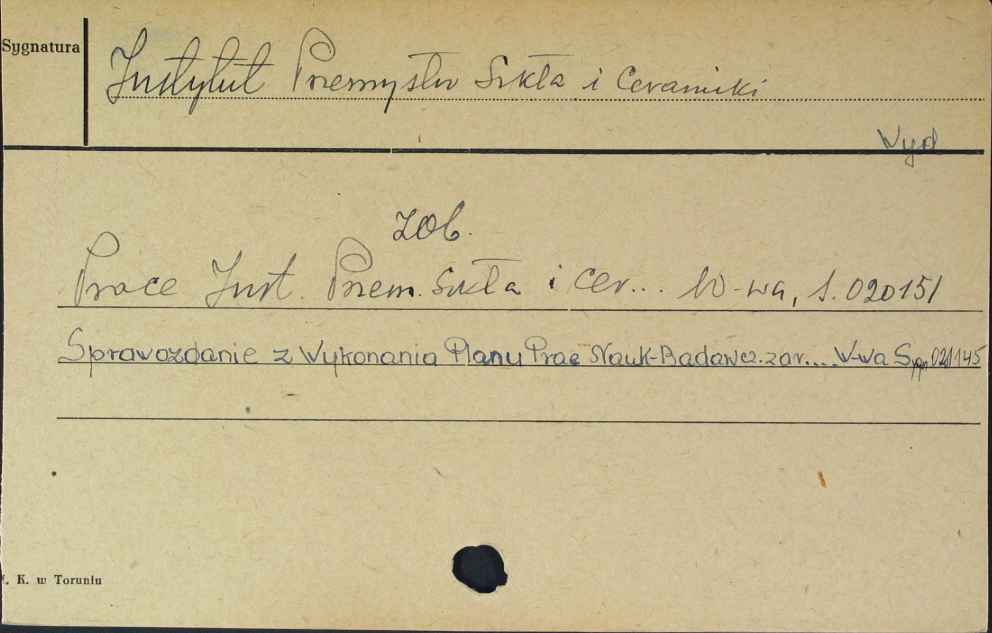 Sygnatura
Instytut Przemysłu Szkła i Ceramiki
Wyd
zob.
Prace Inst. Przem. Szkła i Cer... W-wa, S. 020151
Sprawozdanie z Wykonania Planu Prac Nauk-Badawcz. za r.... W-wa
K. w Toruniu